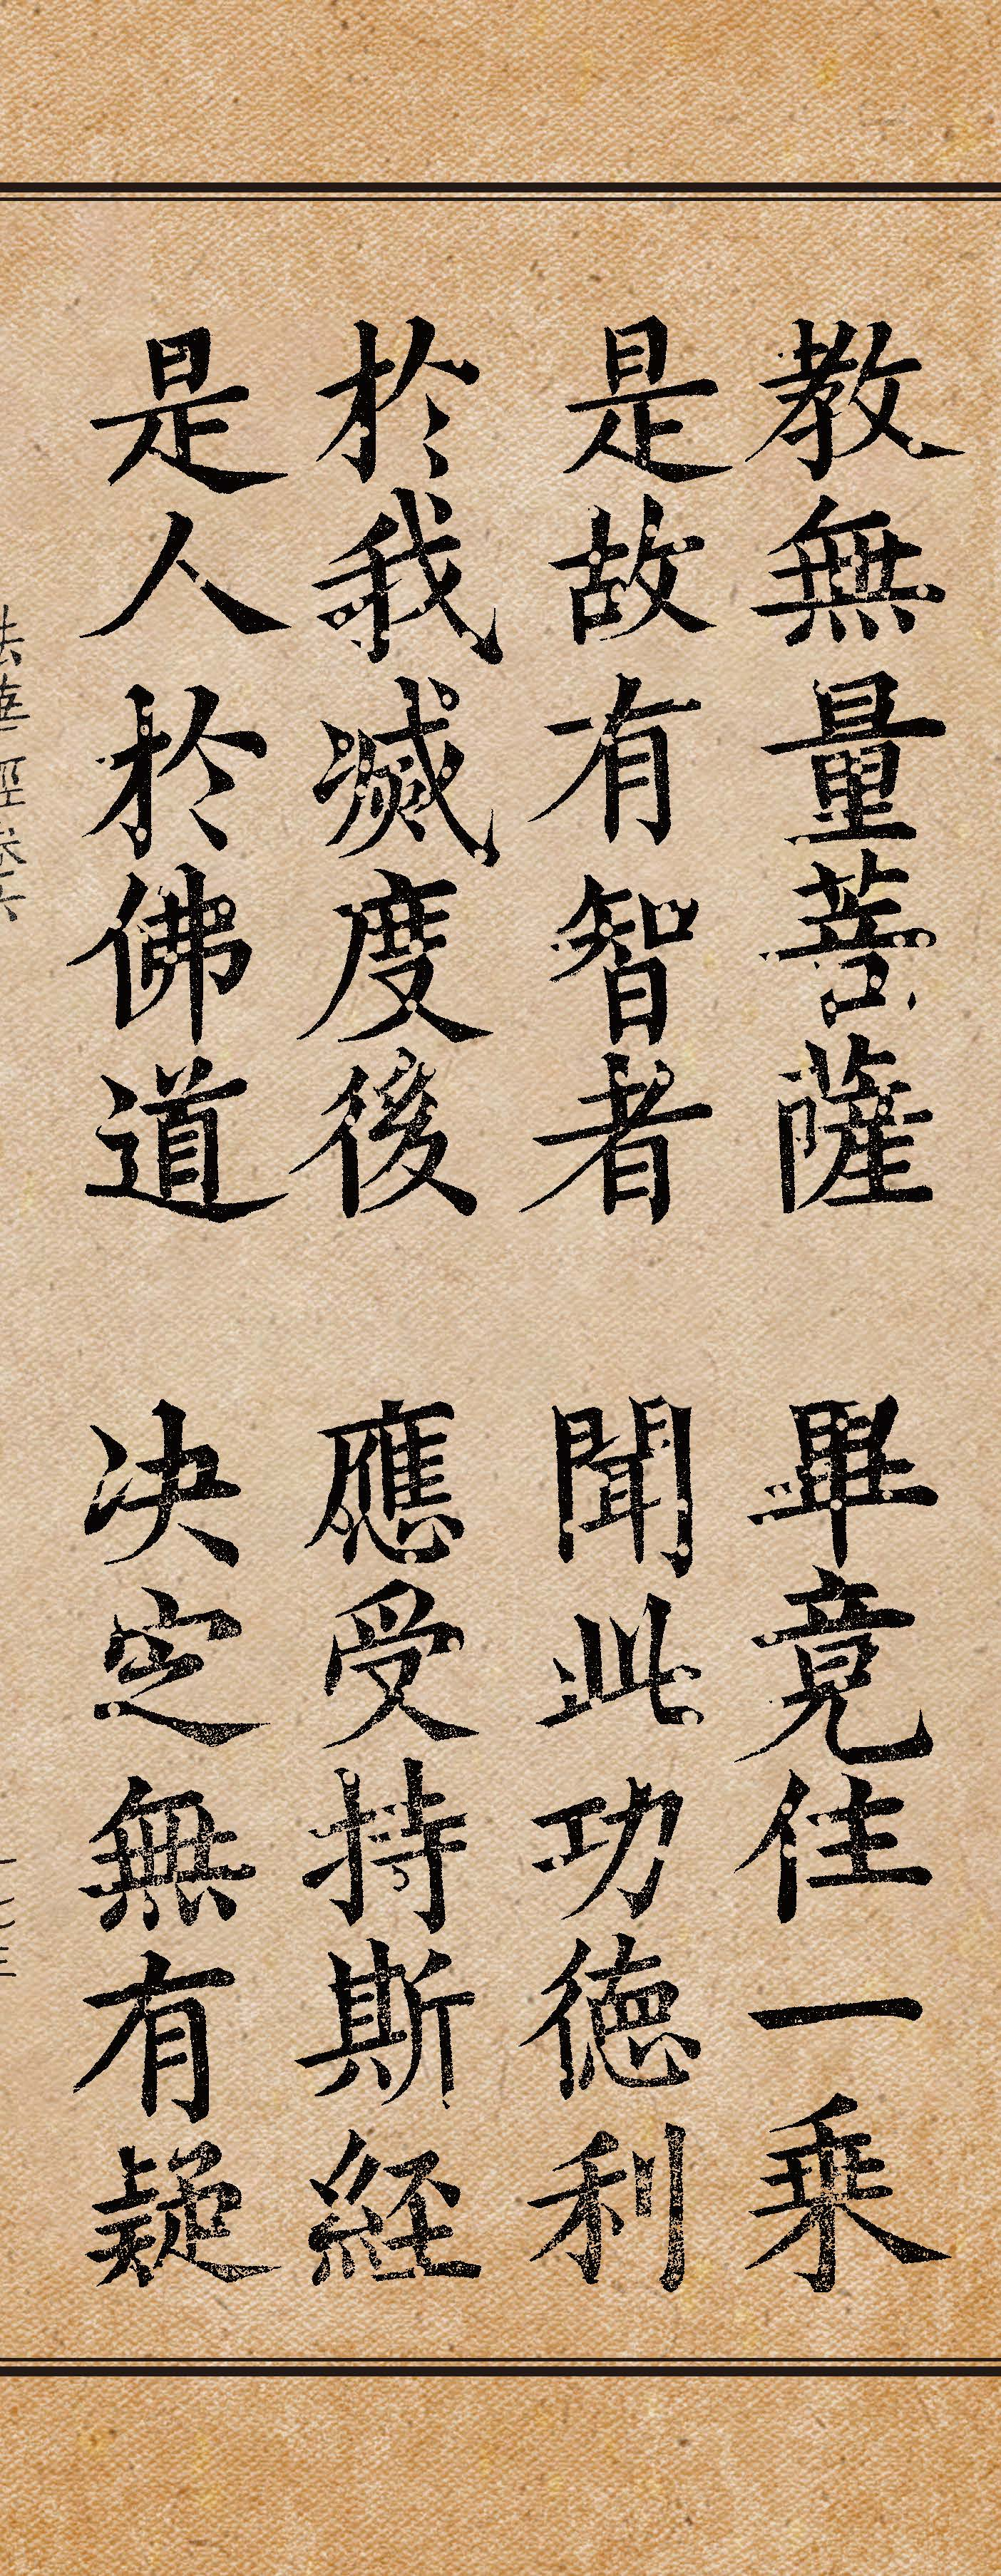 教無量菩薩 畢竟住一乗
是故有智者 聞此功徳利
於我滅度後 應受持斯経
是人於佛道 决定無有疑
法華経巻六